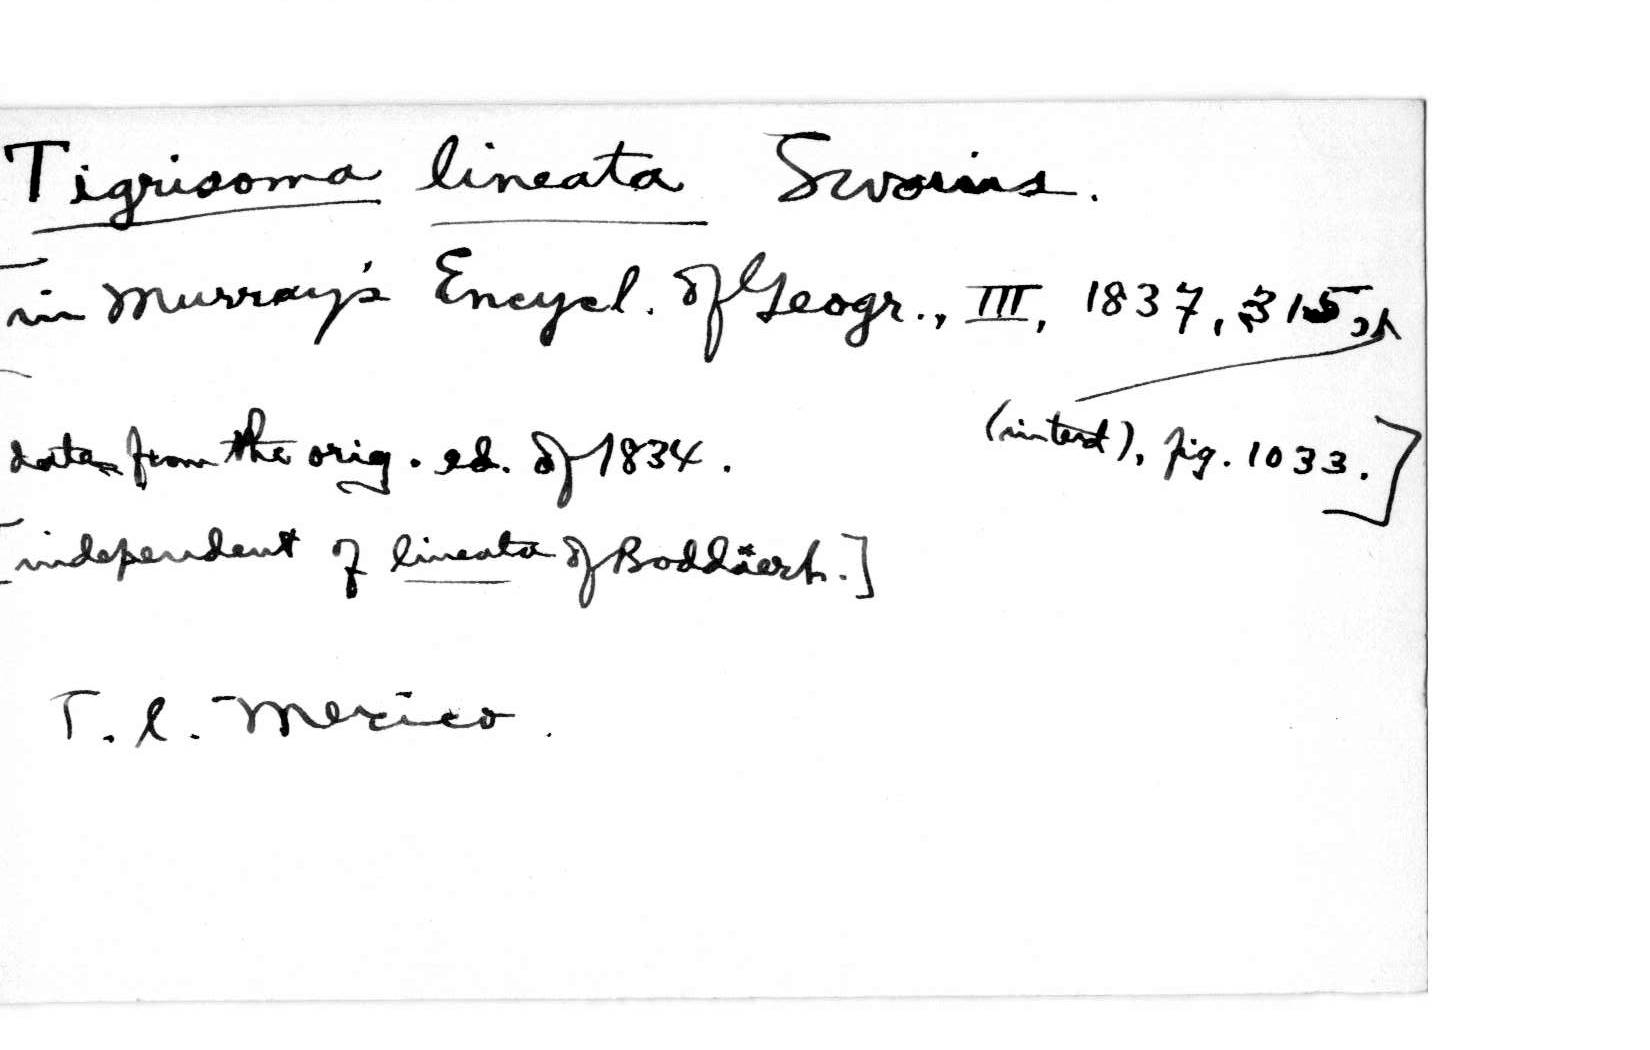 Tigrisoma lineata Swains.
[in Murray's Encycl. of Geogr., III, 1837, 315,
(in text), fig. 1033.]
dates from the orig. ed. of 1834.
[independent of lineata of Boddäert.]
T. l. Mexico.